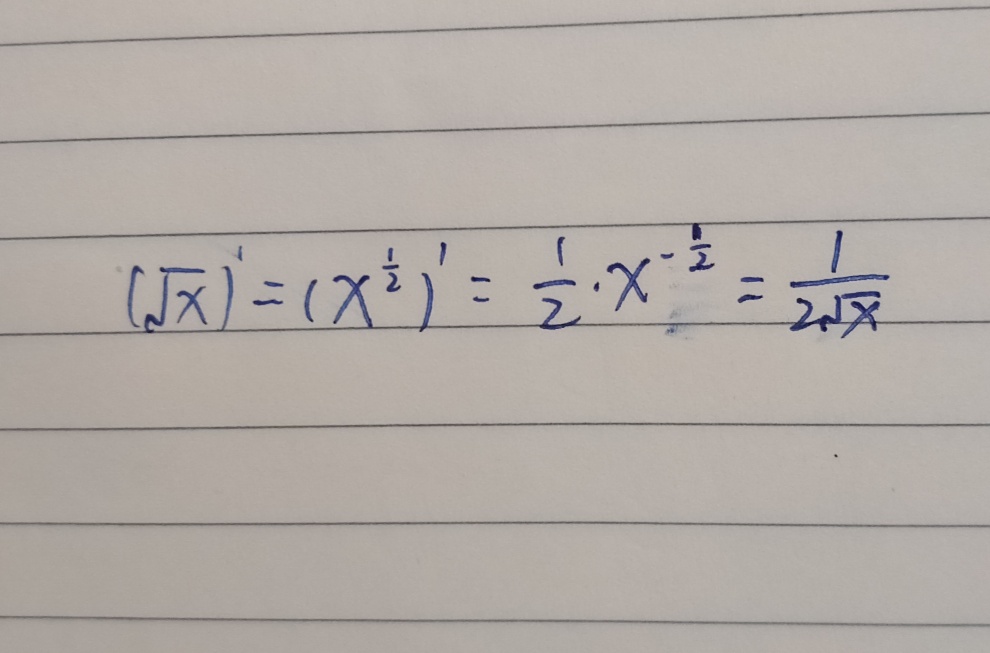 (√x)' = (x^{1/2})' = 1/2 · x^{-1/2} = 1/(2√x)